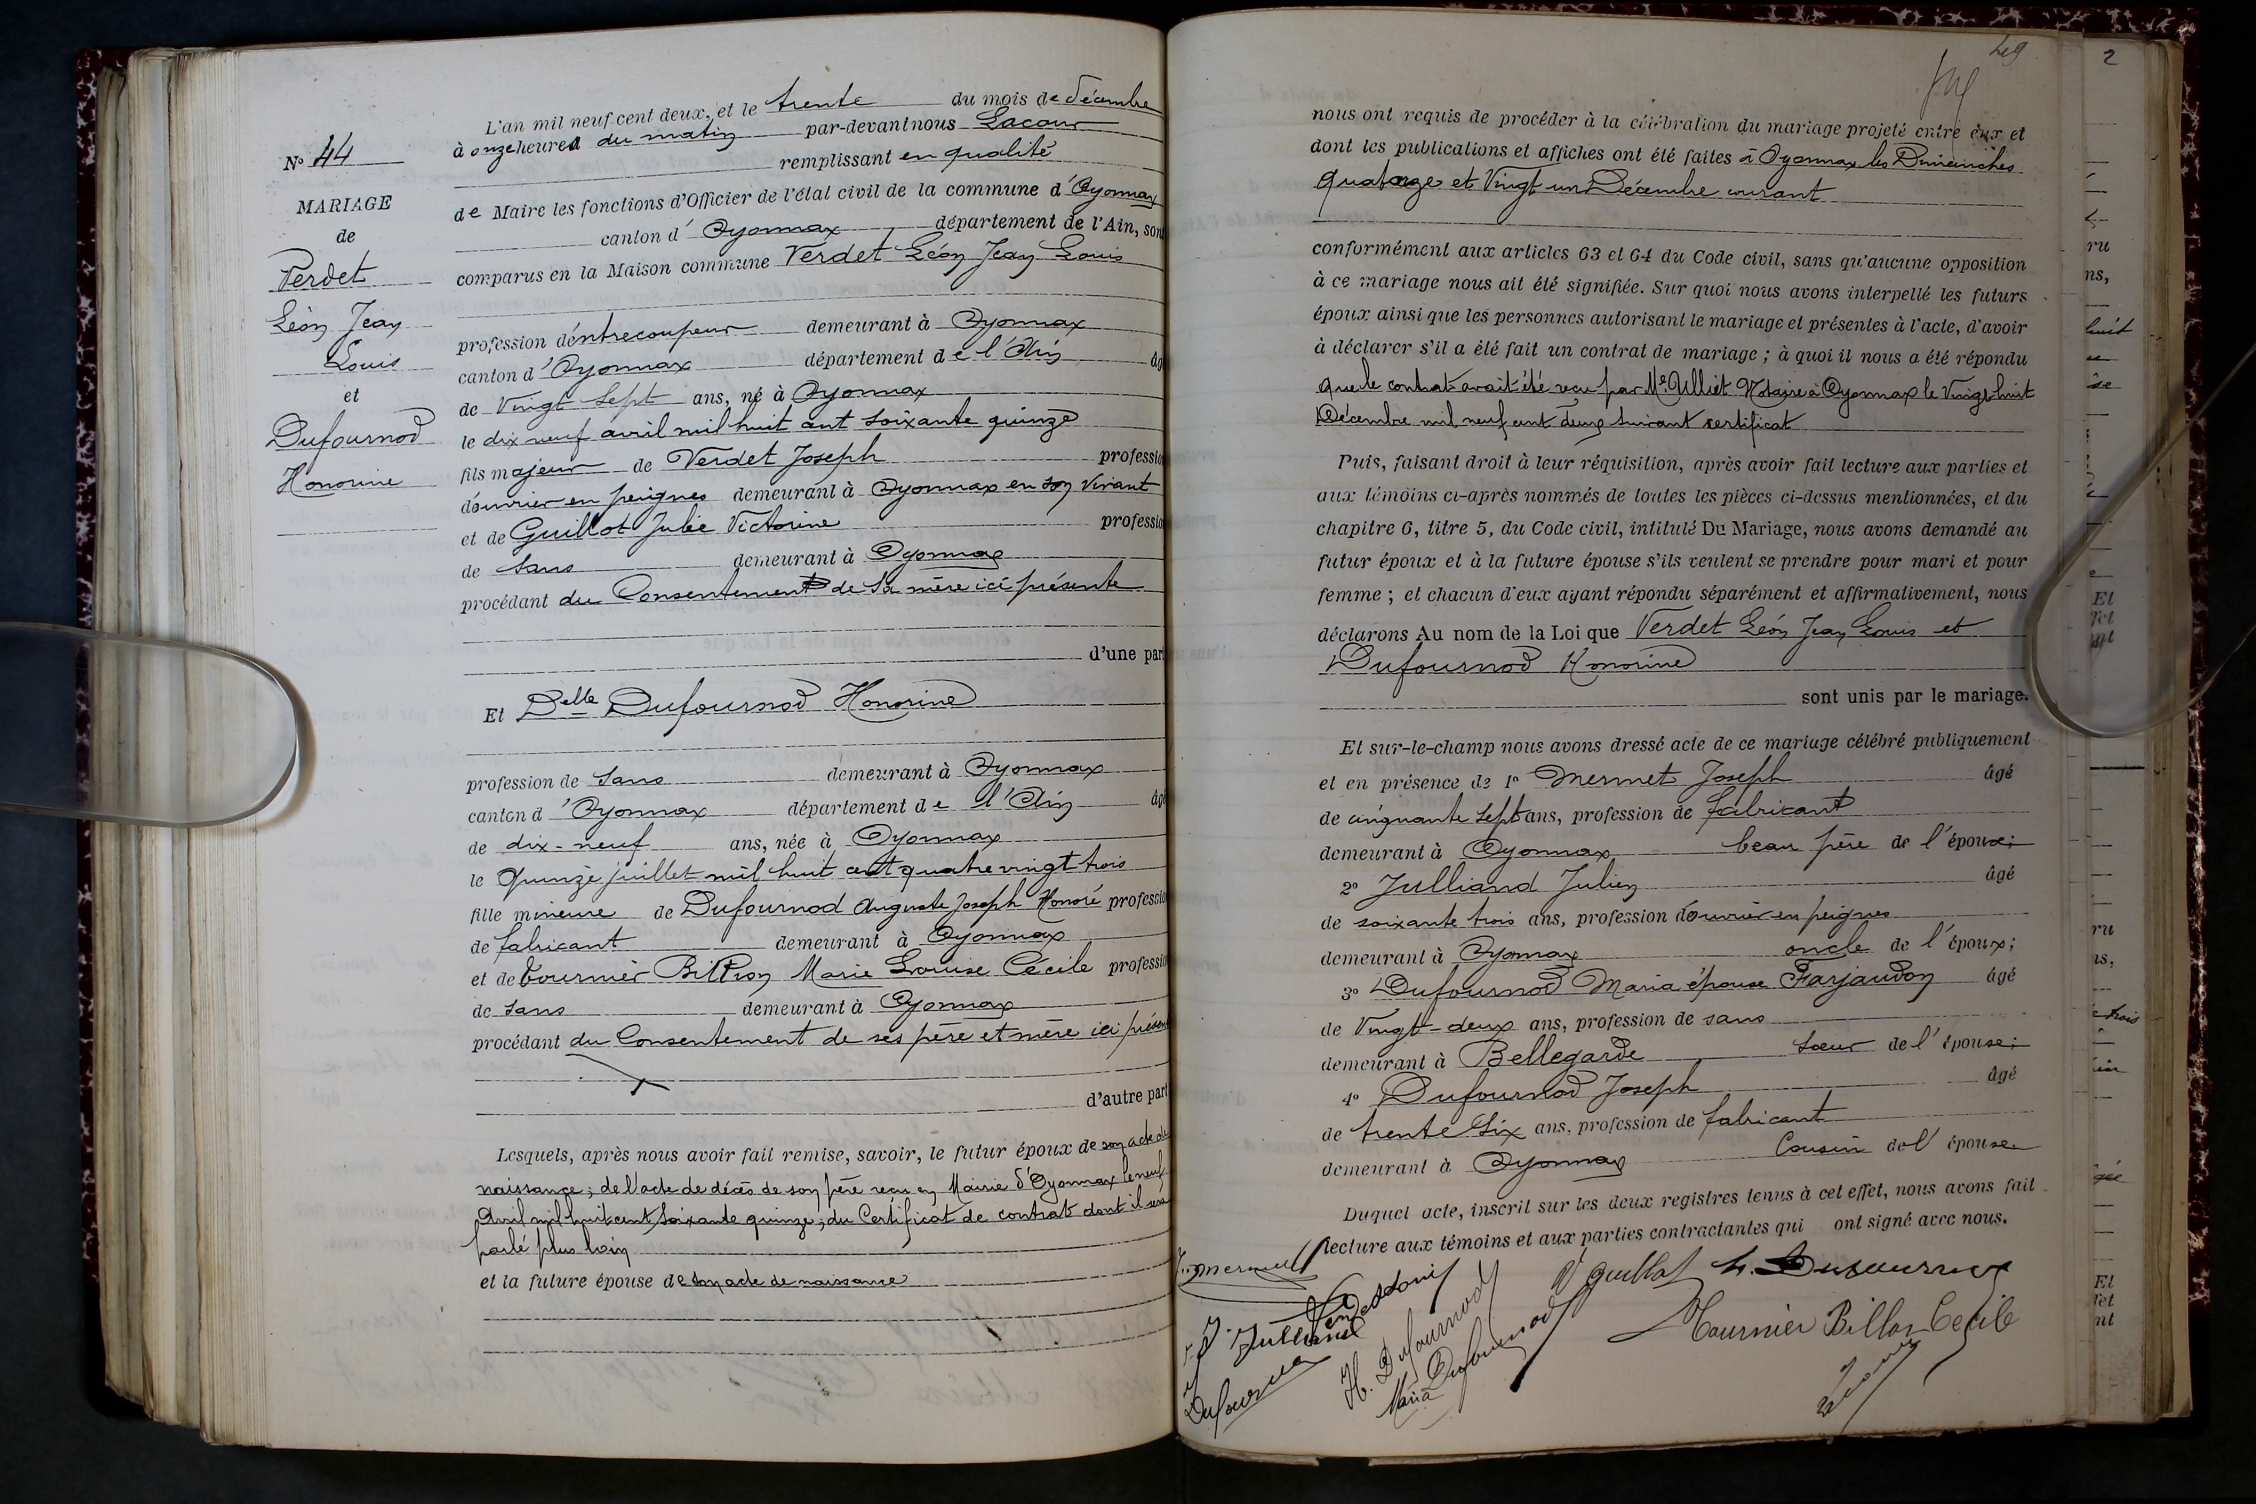 L'an mil neuf cent deux, et le trente du mois de décembre
à onze heures du matin par-devant nous Lacour
remplissant en qualité
de Maire les fonctions d'Officier de l'état civil de la commune d'Oyonnax
canton d'Oyonnax département de l'Ain, sont
comparus en la Maison commune Verdet Léon Jean Louis
profession d'entrecoupeur demeurant à Oyonnax
canton d'Oyonnax département de l'Ain âgé
de Vingt Sept ans, né à Oyonnax
le dix neuf avril mil huit cent soixante quinze
fils majeur de Verdet Joseph profession
d'ouvrier en peignes demeurant à Oyonnax en son vivant
et de Guillot Julie Victorine profession
de sans demeurant à Oyonnax
procédant du Consentement de sa mère ici présente
d'une part
Et Delle Dufournod Honorine
profession de sans demeurant à Oyonnax
canton d'Oyonnax département de l'Ain âgé
de dix-neuf ans, née à Oyonnax
le quinze juillet mil huit cent quatre vingt trois
fille mineure de Dufournod Auguste Joseph Honoré profession
de fabricant demeurant à Oyonnax
et de Tournier Billion Marie Louise Cécile profession
de sans demeurant à Oyonnax
procédant du Consentement de ses père et mère ici présents
d'autre part
Lesquels, après nous avoir fait remise, savoir, le futur époux de son acte de
naissance; de l'acte de décès de son père reçu en Mairie d'Oyonnax le neuf
Avril mil huit cent soixante quinze; du Certificat de contrat dont il sera
parlé plus loin
et la future épouse de son acte de naissance
No 44
MARIAGE
de
Verdet
Léon Jean
Louis
et
Dufournod
Honorine
49
nous ont requis de procéder à la célébration du mariage projeté entre eux et
dont les publications et affiches ont été faites à Oyonnax les Dimanches
quatorze et Vingt un Décembre courant
conformément aux articles 63 et 64 du Code civil, sans qu'aucune opposition
à ce mariage nous ait été signifiée. Sur quoi nous avons interpellé les futurs
époux ainsi que les personnes autorisant le mariage et présentes à l'acte, d'avoir
à déclarer s'il a été fait un contrat de mariage ; à quoi il nous a été répondu
que le contrat avait été reçu par Me Ulliet Notaire à Oyonnax le Vingt huit
Décembre mil neuf cent deux suivant certificat
Puis, faisant droit à leur réquisition, après avoir fait lecture aux parties et
aux témoins ci-après nommés de toutes les pièces ci-dessus mentionnées, et du
chapitre 6, titre 5, du Code civil, intitulé Du Mariage, nous avons demandé au
futur époux et à la future épouse s'ils veulent se prendre pour mari et pour
femme ; et chacun d'eux ayant répondu séparément et affirmativement, nous
déclarons Au nom de la Loi que Verdet Léon Jean Louis et
Dufournod Honorine
sont unis par le mariage.
Et sur-le-champ nous avons dressé acte de ce mariage célébré publiquement
et en présence de 1o Mermet Joseph âgé
de cinquante sept ans, profession de fabricant
demeurant à Oyonnax beau père de l'époux;
2o Julliand Julien âgé
de soixante trois ans, profession d'ouvrier en peignes
demeurant à Oyonnax oncle de l'époux;
3o Dufournod Maria épouse Farjaudon âgé
de Vingt-deux ans, profession de sans
demeurant à Bellegarde soeur de l'épouse;
4o Dufournod Joseph âgé
de trente six ans, profession de fabricant
demeurant à Oyonnax Cousin de l'épouse
Duquel acte, inscrit sur les deux registres tenus à cet effet, nous avons fait
lecture aux témoins et aux parties contractantes qui ont signé avec nous.
V Guillot H. Dufournod
J. Julliand
H. Dufournod
Maria Dufournod
Tournier Billon Cécile
2
ru
ns,
huit
se
Et
ru
ns,
trois
Et
nt